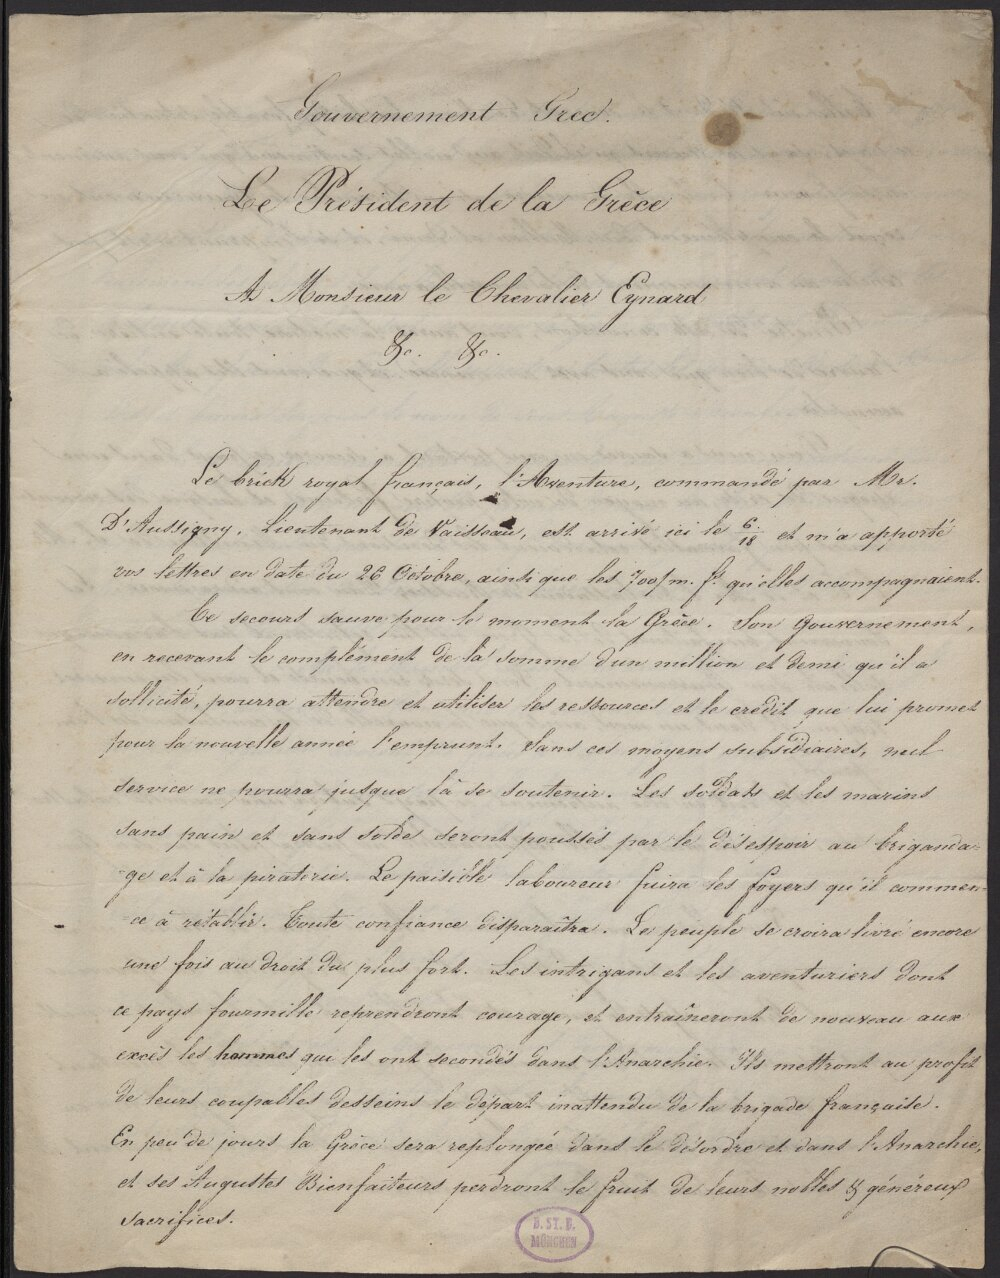 Gouvernement Grec.
Le Président de la Grèce
A Monsieur le Chevalier Eynard
&c. &c.
Le brick royal français, l'Aventure, commandé par Mr.
D'Aussigny, Lieutenant de Vaisseau, est arrivé ici le 6/18 et m'a apporté
vos lettres en date du 26 Octobre, ainsi que les 700/m. f. qu'elles accompagnaient.
Ce secours sauve pour le moment la Grèce. Son Gouvernement,
en recevant le complément de la somme d'un million et demi qu'il a
sollicité, pourra attendre et utiliser les ressources et le crédit que lui promet
pour la nouvelle année l'emprunt. Sans ces moyens subsidiaires, nul
service ne pourra jusque là se soutenir. Les soldats et les marins
sans pain et sans solde seront poussés par le désespoir au briganda-
-ge et à la piraterie. Le paisible laboureur fuira les foyers qu'il commen-
-ce à rétablir. Toute confiance disparaîtra. Le peuple se croira livré encore
une fois au droit du plus fort. Les intrigans et les aventuriers dont
ce pays fourmille reprendront courage, et entraîneront de nouveau aux
excès les hommes qui les ont secondés dans l'Anarchie. Ils mettront au profit
de leurs coupables desseins le départ inattendu de la brigade française.
En peu de jours la Grèce sera replongée dans le désordre et dans l'Anarchie,
et ses Augustes Bienfaiteurs perdront le fruit de leurs nobles & généreux
sacrifices.
B. ST. B.
MÜNCHEN